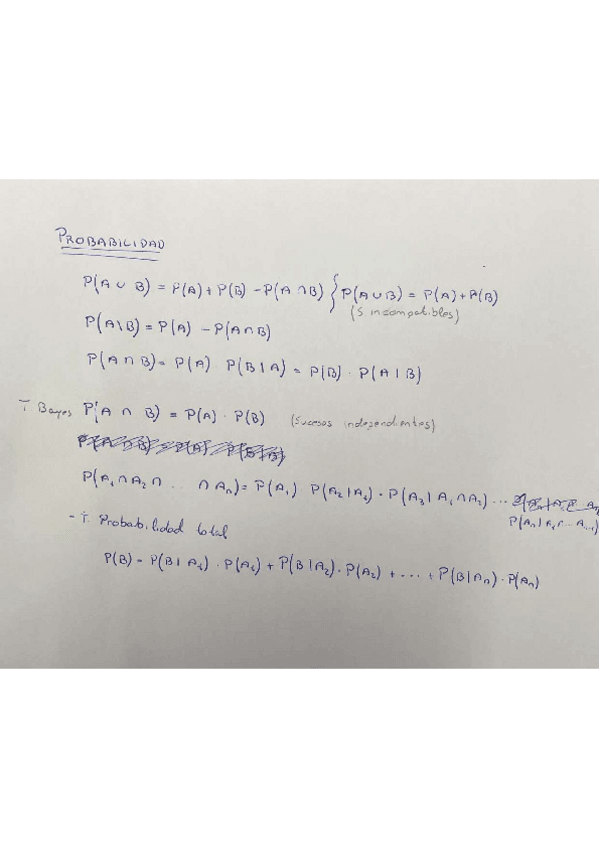 PROBABILIDAD
P(A ∪ B) = P(A) + P(B) - P(A ∩ B) } P(A ∪ B) = P(A) + P(B)
(S incompatibles)
P(A\B) = P(A) - P(A∩B)
P(A ∩ B) = P(A) P(B|A) = P(B) · P(A|B)
T. Bayes P(A ∩ B) = P(A) · P(B) (sucesos independientes)
P(A₁∩A₂∩ ... ∩ Aₙ) = P(A₁) P(A₂|A₁) · P(A₃|A₁∩A₂) ...
P(Aₙ|A₁∩... Aₙ₋₁)
- T. Probabilidad total
P(B) = P(B|A₁) · P(A₁) + P(B|A₂) · P(A₂) + ... + P(B|Aₙ) · P(Aₙ)